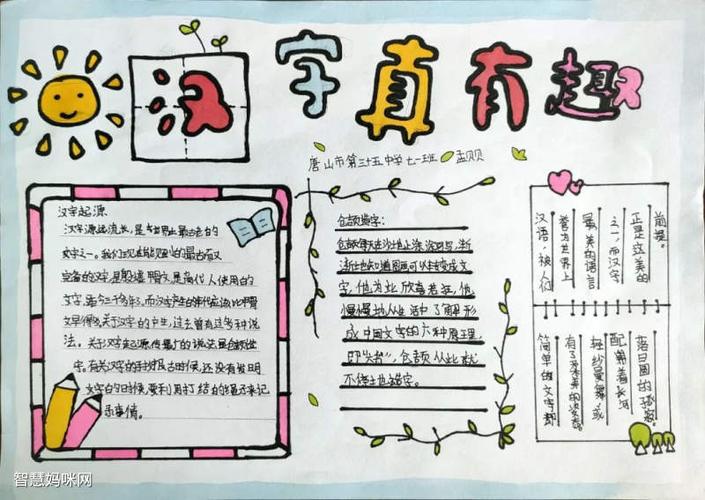 汉字真有趣
唐山市第三十五中学 七一班 孟贝贝
汉字起源
汉字源远流长,是世界上最古老的
文字之一。我们现在能见到的最古而又
完备的汉字,是殷墟甲骨文,是商代人使用的
文字,距今三千多年。而汉字产生的年代应该比甲骨
文早得多。关于汉字的产生,过去曾有过多种说
法。关于汉字起源,传最广的说法是仓颉造
字。有关汉字的 古时候,还没有发明
文字的时候,要利用打结的 来记
录事情。
仓颉造字:
仓颉每天在沙地上涂涂写写,渐
渐他知道图画可以转变成文
字,他为此欣喜若狂,他
慢慢地从生活中了解形
成中国文字的六种原理,
即"六书",仓颉从此就
不停地造字。
前提。
正是立美的
之一,而汉字
最美的语言
誉为世界上
汉语,被人们
落日圆的
配着长河
轻纱曼舞,或
有了柔美的姿态。
简单的文字都
智慧妈咪网